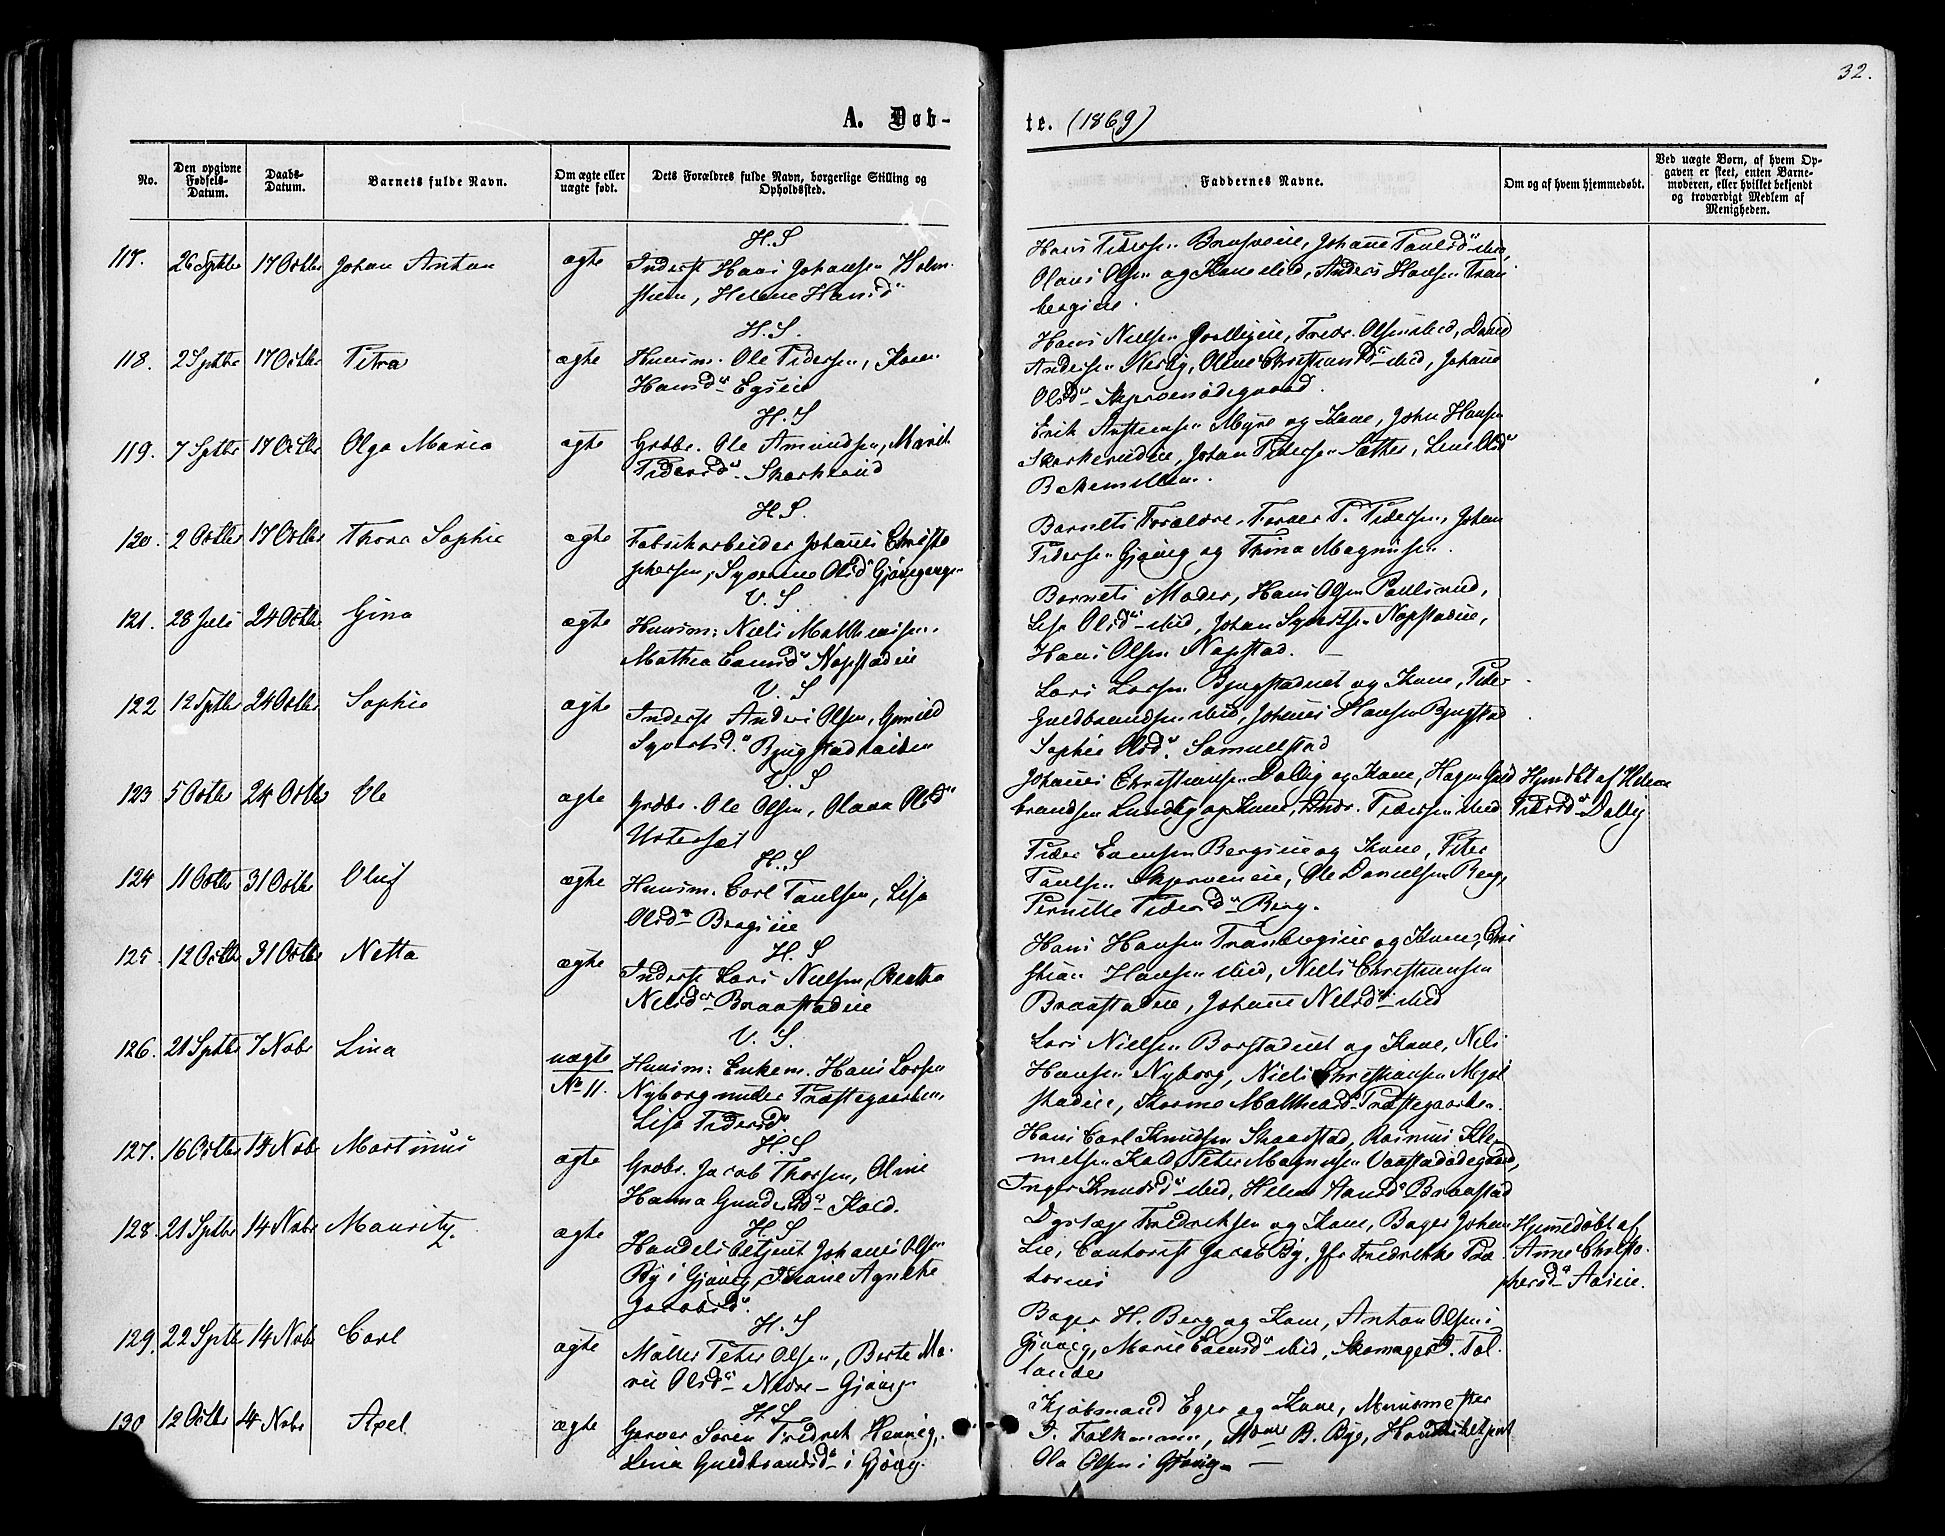 32.
A. Døb-
te. (1869)
No.
Den opgivne Fødsels-Datum.
Daabs-Datum.
Barnets fulde Navn.
Om ægte eller uægte født.
Dets Forældres fulde Navn, borgerlige Stilling og Opholdssted.
Faddernes Navne.
Om og af hvem hjemmedøbt.
Ved uægte Børn, af hvem Opgaven er skeet, enten Barnemoderen, eller hvilket bekjendt og troværdigt Medlem af Menigheden.
117. 26 Sptbr 17 Octbr Johan Anton ægte
H.S
Inderst Hans Johansen Holm-
stuen, Helene Hansd
Hans Pedersen Brusveie, Johanne Paulsd
Olaus Olsen og Kone ibid, Anders Hansen Tran
bergeie.
118. 2 Sptbr 17 Octbr Petra ægte
H.S.
Huusm. Ole Pedersen, Karen
Hansd Egseie
Hans Nielsen eie, Fredr. Olsen ibid,
Andersen Nerby, Oline Christiansd ibid, Johane
Olsd Skjervenødegaard.
119. 7 Sptbr 17 Octbr Olga Maria ægte
H.S
Grdbr. Ole Amundsen, Marit
Pedersd Skarkerud
Erik Austensen Myre og Kone, John Hansen
Skarkerudeie, Johan Pedersen Sæther, Lene Olsd
Bakemellem.
120. 2 Octbr 17 Octbr Thora Sophie ægte
H.S.
Fabrikarbeider Johanes Christo
phersen, Syverine Olsd Gjøvigenge
Barnets Forældre, Farver P. Pedersen, Johan
Pedersen Gjøvig og Trina Magnusen.
121. 28 Juli 24 Octbr Gina ægte
V.S
Huusm: Niels Mathiesen,
Mathea Evensd Napstadeie
Barnets Moder, Hans Olsen Paulsrud,
Lisa Olsd ibid, Johan Syvertsen Napstadeie,
Hans Olsen Napstad.
122 12 Sptbr 24 Octbr Sophie ægte
V.S
Inderst Anders Olsen, Gunild
Syvertsd. Bjugstadhaiden
Lars Larsen Bjugstadeiet og Kone, Peder
Guldbrandsen ibid, Johanes Hansen Bjugstad
Sophie Olsd. Samuelstad
123 5 Octbr 24 Octbr Ole ægte
V.S
Grdbr. Ole Olsen, Olava Olsd
Ustersæt
Johanes Christiansen Dalby og Kone, Hagen Guld
brandsen Lundby og Kone, Pedersen ibid
Hjemdbt af Helene
Pedersd Dalby
124 11 Octbr 31 Octbr Oluf ægte
H.S
Huusm. Carl Paulsen, Lisa
Olsd Bergseie
Peder Evensen Bergseie og Kone, Peter
Paulsen Skjerveneie, Ole Danielsen Berg,
Pernille Pedersd Berg.
125 12 Octbr 31 Octbr Netta ægte
H.S
Inderst Lars Nielsen, Beathe
Nielsd Braastadeie
Hans Hansen Tranbergeie og Kone, Chri
stian Hansen ibid, Niels Christiansen
Braastadeie, Johane Nielsd ibid
126. 21 Sptbr 7 Nobr Lina uægte
No 11.
V.S.
Huusm: Enkem. Hans Larsen
Nyborg under Præstegaarden,
Lisa Pedersd.
Lars Nielsen Borstadeiet og Kone, Nils
Hansen Nyborg, Niels Christiansen Mjøl
stadeie, Karine Mathead Præstegaarden.
127. 16 Octbr 14 Nobr Martinus ægte
H.S
Grdbr. Jacob Thorsen, Oline
Hanna Gundersd Kold.
Hans Carl Knudsen Skaarstad, Rasmus Kle-
metsen Kold, Peter Magnusen Vaastadødegaard,
Inger Knudsd ibid, Helene Hansd Braastad
128. 21 Sptbr 14 Nobr Mauritz. ægte
H.S
Handelsbetjent Johanes Olsen
By i Gjøvig, Agnethe
Jacobsd.
Fredriksen og Kone, Bager Johan
Lie, Contorist Jacob By, Jfr Fredrikke Præ
torius
Hjemmedøbt af
Anne Christo-
phersd Aaseie.
129. 22 Sptb 14 Nobr Carl ægte
H.S
Møller Peter Olsen, Berte Ma-
rie Olsd Nedre-Gjøvig
Bager H. Berg og Kone, Anton Olsen i
Gjøvig, Marie Evensd ibid, Skomager P. Fal-
lander
130 12 Octbr 14 Nobr Axel ægte
H.S
Garver Søren Fredrik Hennig,
Lina Guldbrandsd i Gjøvig
Kjøbmand Eger og Kone, Muurmester
I. Falkmann, Mme B. Bye, Handelsbetjent
Ole Olsen i Gjøvig.